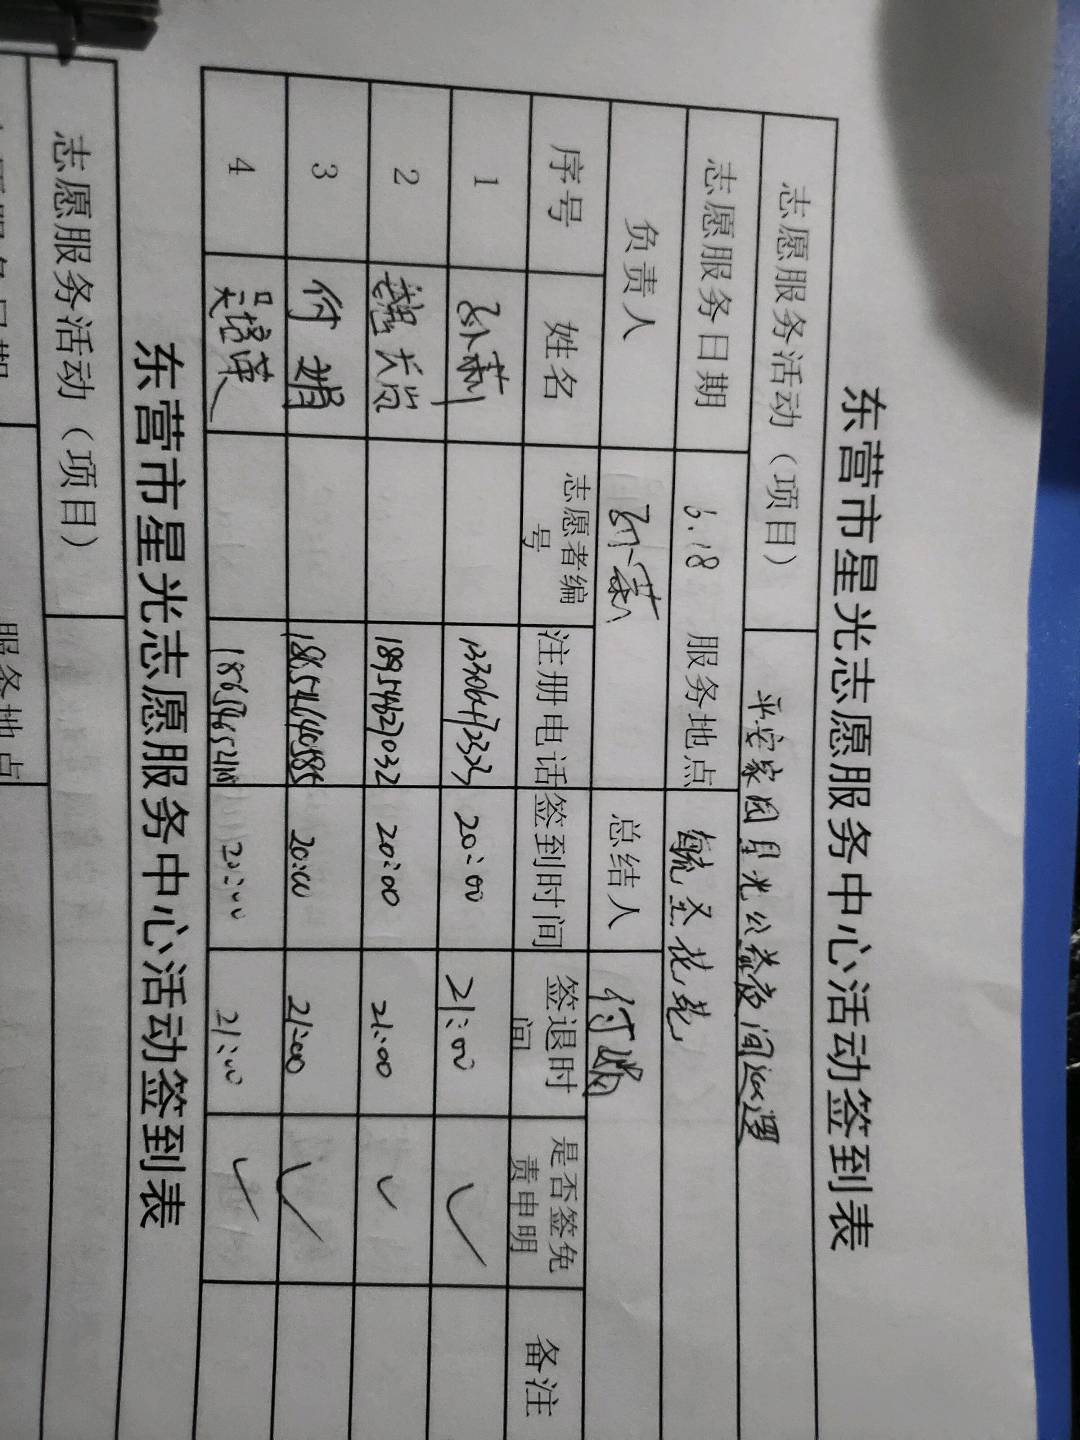 东营市星光志愿服务中心活动签到表
志愿服务活动（项目） 平安家园星光公益夜间巡逻
志愿服务日期 6.18 服务地点
负责人 孙莉 总结人 付娟
序号 姓名 志愿者编号 注册电话 签到时间 签退时间 是否签免责申明 备注
1 孙莉 20:00 21:00 ✓
2 18954627032 20:00 21:00 ✓
3 付娟 20:00 21:00 ✓
4 吴培英 20:00 21:00 ✓
东营市星光志愿服务中心活动签到表
志愿服务活动（项目）
服务地点